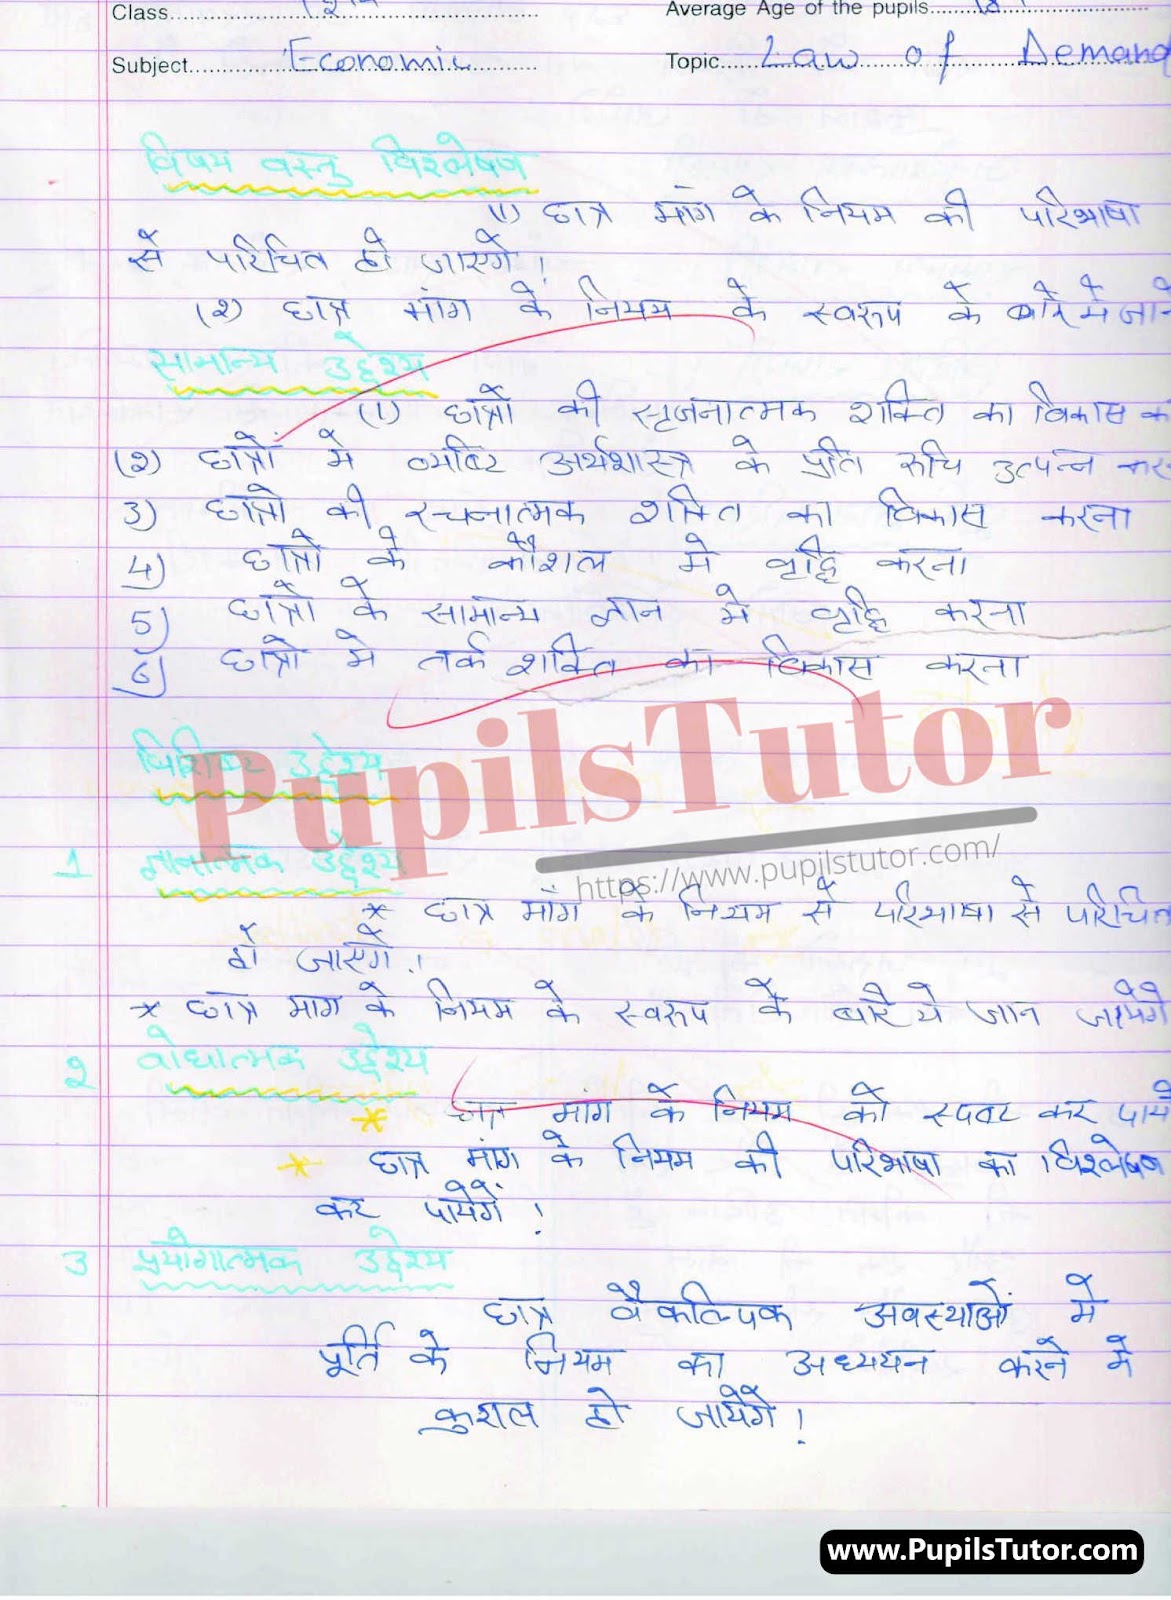 Class.............12.............................
Average Age of the pupils..........18..........
Subject.............Economic.............
Topic......Law of Demand
विषय वस्तु विश्लेषण
(1) छात्र मांग के नियम की परिभाषा
से परिचित हो जाएगे।
(२) छात्र मांग के नियम के स्वरूप के बारे मे जाने
सामान्य उद्देश्य
(1) छात्रों की सृजनात्मक शक्ति का विकास
(२) छात्रों मे व्यष्टि अर्थशास्त्र के प्रति रुचि उत्पन्न कर
3) छात्रो की रचनात्मक शक्ति का विकास करना
4) छात्रो के कौशल मे वृद्धि करना
5) छात्रो के सामान्य ज्ञान मे वृद्धि करना
6) छात्रो मे तर्क शक्ति का विकास करना
विशिष्ट उद्देश्य
PupilsTutor
https://www.pupilstutor.com/
1 ज्ञानात्मक उद्देश्य
* छात्र माँग के नियम से परिभाषा से परिचित
हो जाएगे।
* छात्र माग के नियम के स्वरूप के बारे ये जान जायेगे
२ बोधात्मक उद्देश्य
* छात्र मांग के नियम को स्पष्ट कर पाये
* छात्र मांग के नियम की परिभाषा का विश्लेषण
कर पायेगें।
3 प्रयोगात्मक उद्देश्य
छात्र वैकल्पिक अवस्थाओं मे
पूर्ति के नियम का अध्ययन करने मे
कुशल हो जायेगे।
www.PupilsTutor.com